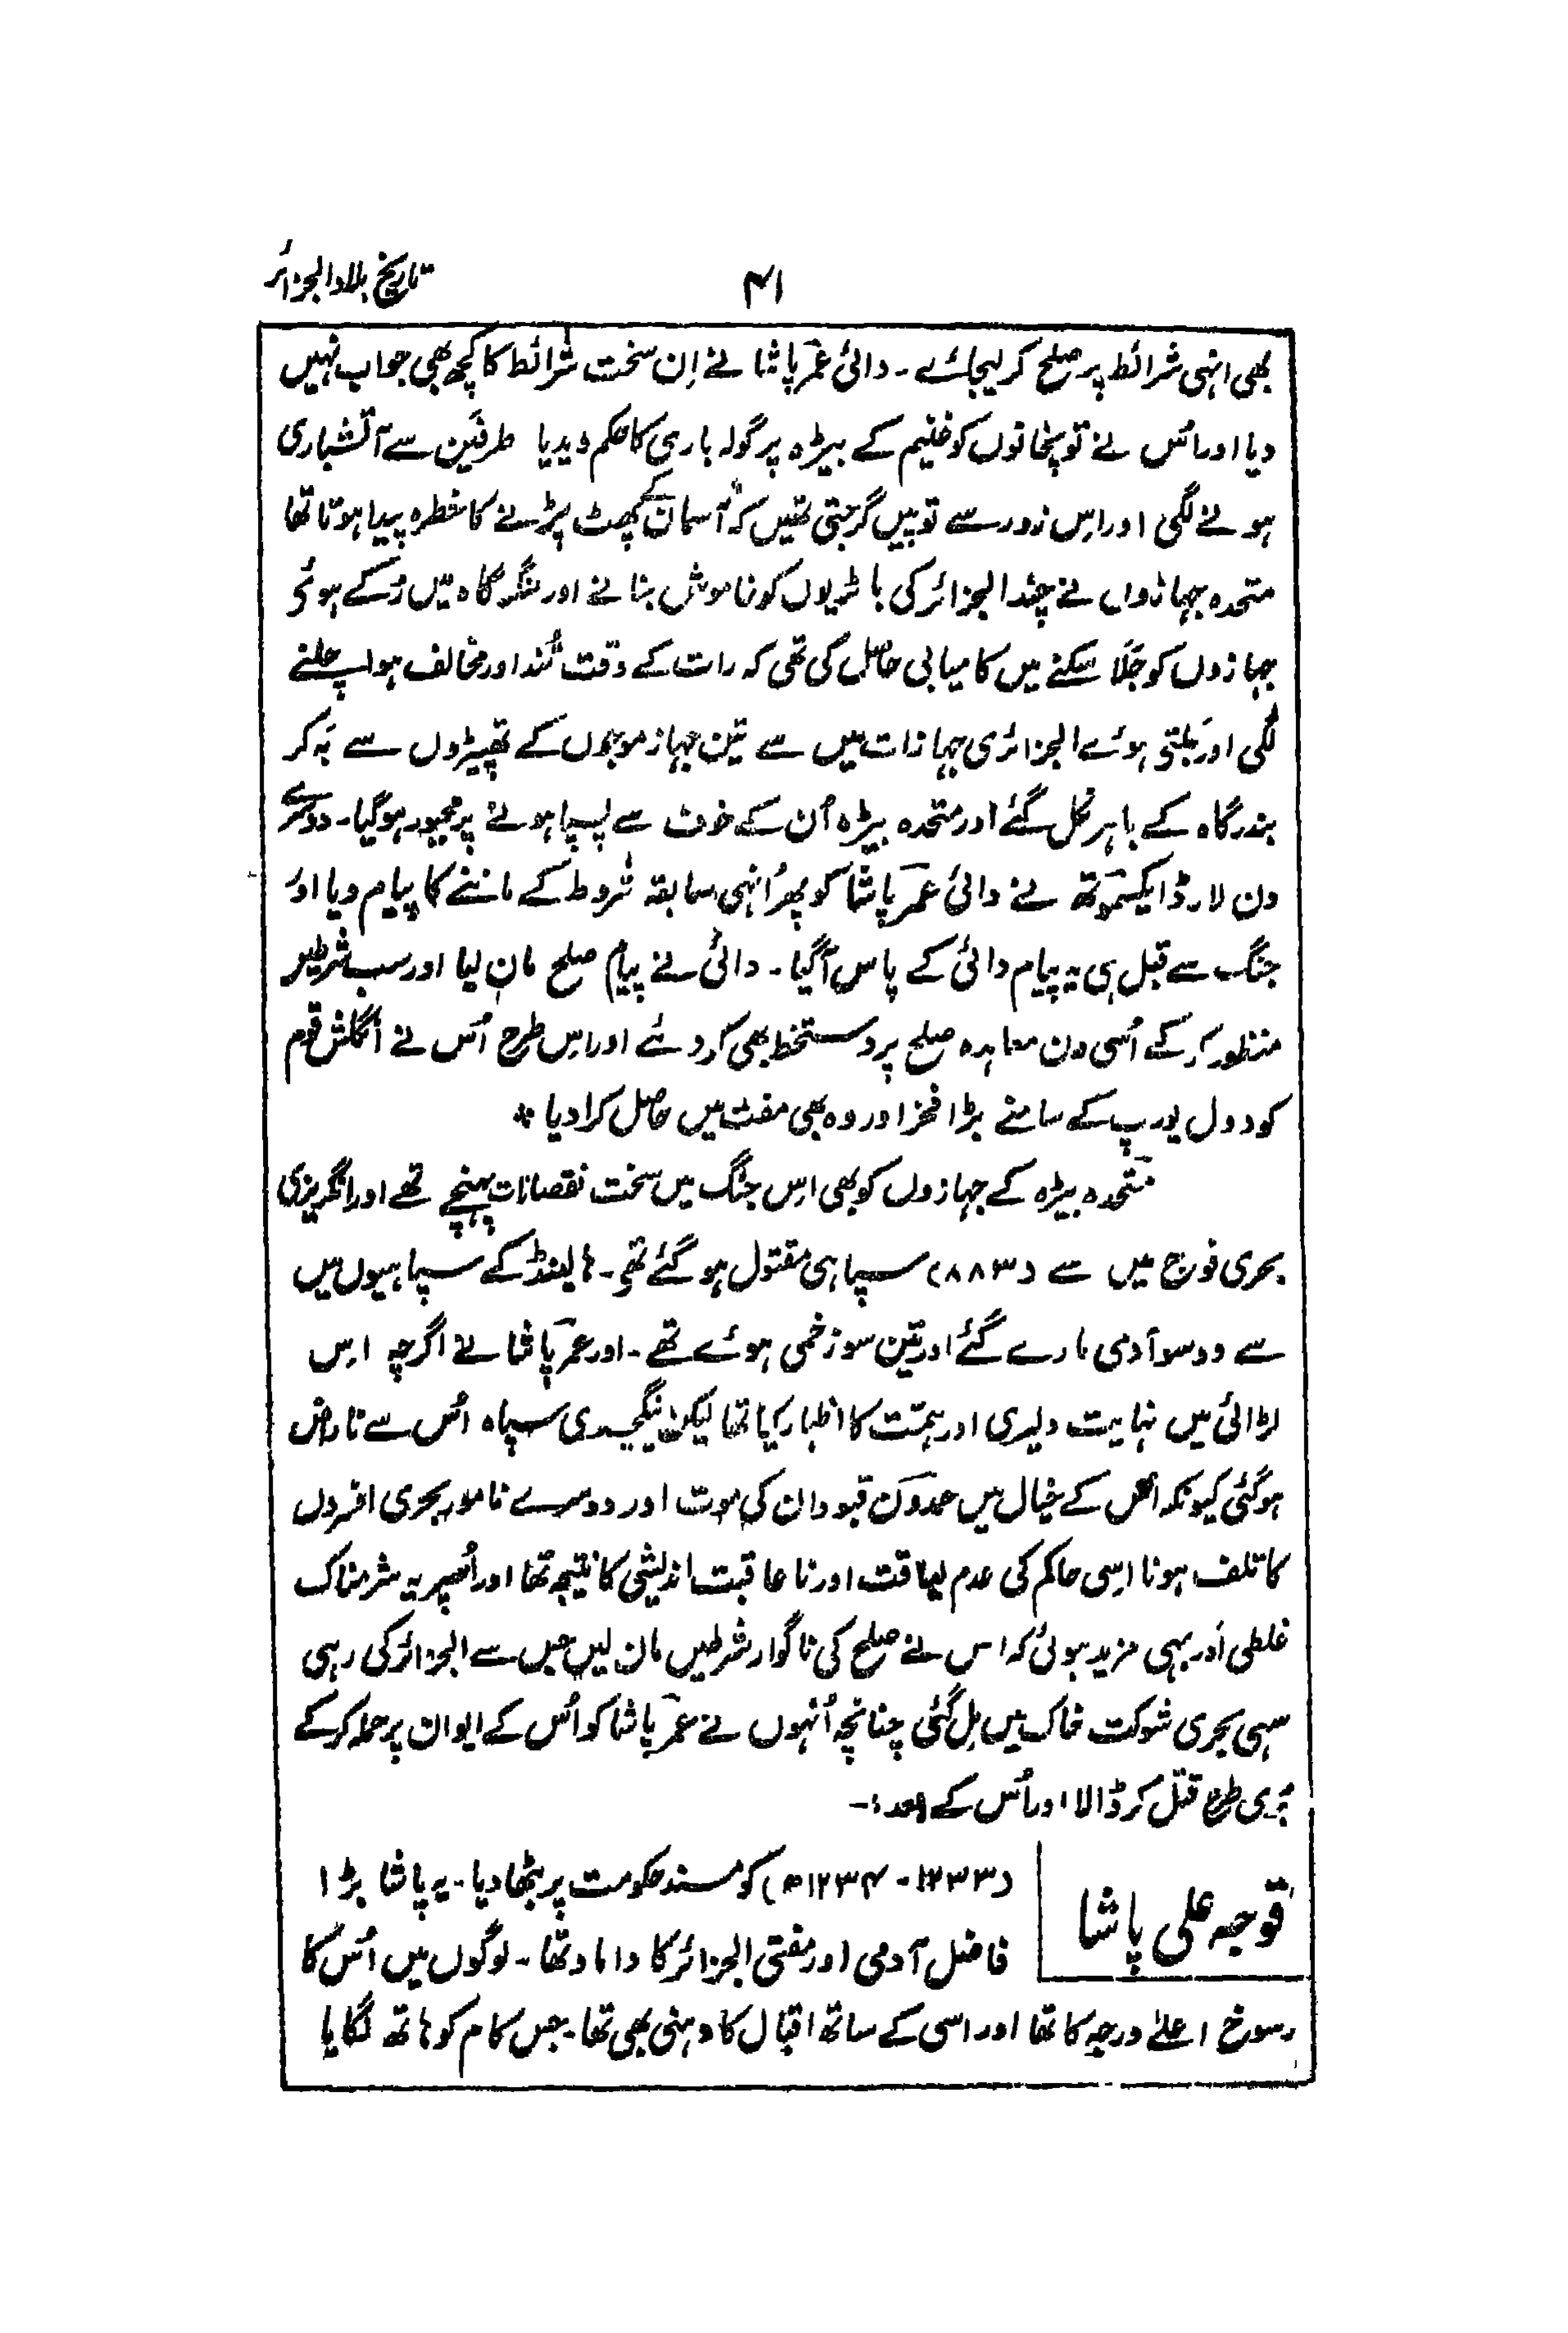 ۴۱
تاریخ بلاد الجزائر
بھی انہی شرائط پر صلح کر لیجائے۔ دائی عمر پاشا نے اِن سخت شرائط کا کچھ بھی جواب نہیں
دیا اور اُس نے توپخانوں کو غنیم کے بیڑہ پر گولہ باری کا حکم دیدیا طرفین سے آتشباری
ہونے لگی اور اِس زور سے توپیں گرجتی تھیں کہ آسمان کے پھٹ پڑنے کا خطرہ پیدا ہوتا تھا
متحدہ جہازوں نے چند الجزائر کی باٹریوں کو خاموش بنانے اور لنگرگاہ میں رُکے ہوئے
جہازوں کو جَلا سکنے میں کامیابی حاصل کی تھی کہ رات کے وقت تُند اور مخالف ہوا چلنے
لگی اور جَلتے ہوئے الجزائری جہازات میں سے تین جہاز موجوں کے تھپیڑوں سے بَہ کر
بندرگاہ کے باہر نکل گئے اور متحدہ بیڑہ اُن کے خوف سے پسپا ہونے پر مجبور ہوگیا۔ دوسرے
دن لارڈ ایکسموتھ نے دائی عمر پاشا کو پھر اُنہی سابقہ شروط کے ماننے کا پیام دیا اور
جنگ سے قبل ہی یہ پیام دائی کے پاس آگیا۔ دائی نے پیام صلح مان لیا اور سب شرطیں
منظور کر کے اُسی دن معاہدہ صلح پر دستخط بھی کر دئے اور اِس طرح اُس نے انگلش قوم
کو دول یورپ کے سامنے بڑا فخر اور وہ بھی مفت میں حاصل کرا دیا *
متحدہ بیڑہ کے جہازوں کو بھی اِس جنگ میں سخت نقصانات پہنچے تھے اور انگریزی
بحری فوج میں سے (۸۸۳) سپاہی مقتول ہو گئے تھے۔ ہالینڈ کے سپاہیوں میں
سے دو سو آدمی مارے گئے اور تین سو زخمی ہوئے تھے۔ اور عمر پاشا نے اگرچہ اِس
لڑائی میں نہایت دلیری اور ہمّت کا اظہار کیا تھا لیکن ینگچری سپاہ اُس سے ناراض
ہوگئی کیونکہ اُس کے خیال میں حمدون قبودان کی موت اور دوسرے نامور بحری افسروں
کا تلف ہونا اِسی حاکم کی عدم لیاقت اور نا عاقبت اندیشی کا نتیجہ تھا اور اُسپر یہ شرمناک
غلطی اَور بہی مزید ہوئی کہ اس نے صلح کی ناگوار شرطیں مان لیں جس سے الجزائر کی رہی
سہی بحری شوکت خاک میں مِل گئی چنانچہ اُنہوں نے عمر پاشا کو اُس کے ایوان پر حملہ کرکے
بُری طرح قتل کر ڈالا اور اُس کے بعد:۔
قوجہ علی پاشا
(۱۲۳۳۔۱۲۳۴ھ) کو مسند حکومت پر بٹھا دیا۔ یہ پاشا بڑا
فاضل آدمی اور مفتی الجزائر کا داماد تھا۔ لوگوں میں اُس کا
رسوخ اعلےٰ درجہ کا تھا اور اسی کے ساتھ اقبال کا دہنی بھی تھا۔ جس کام کو ہاتھ لگایا